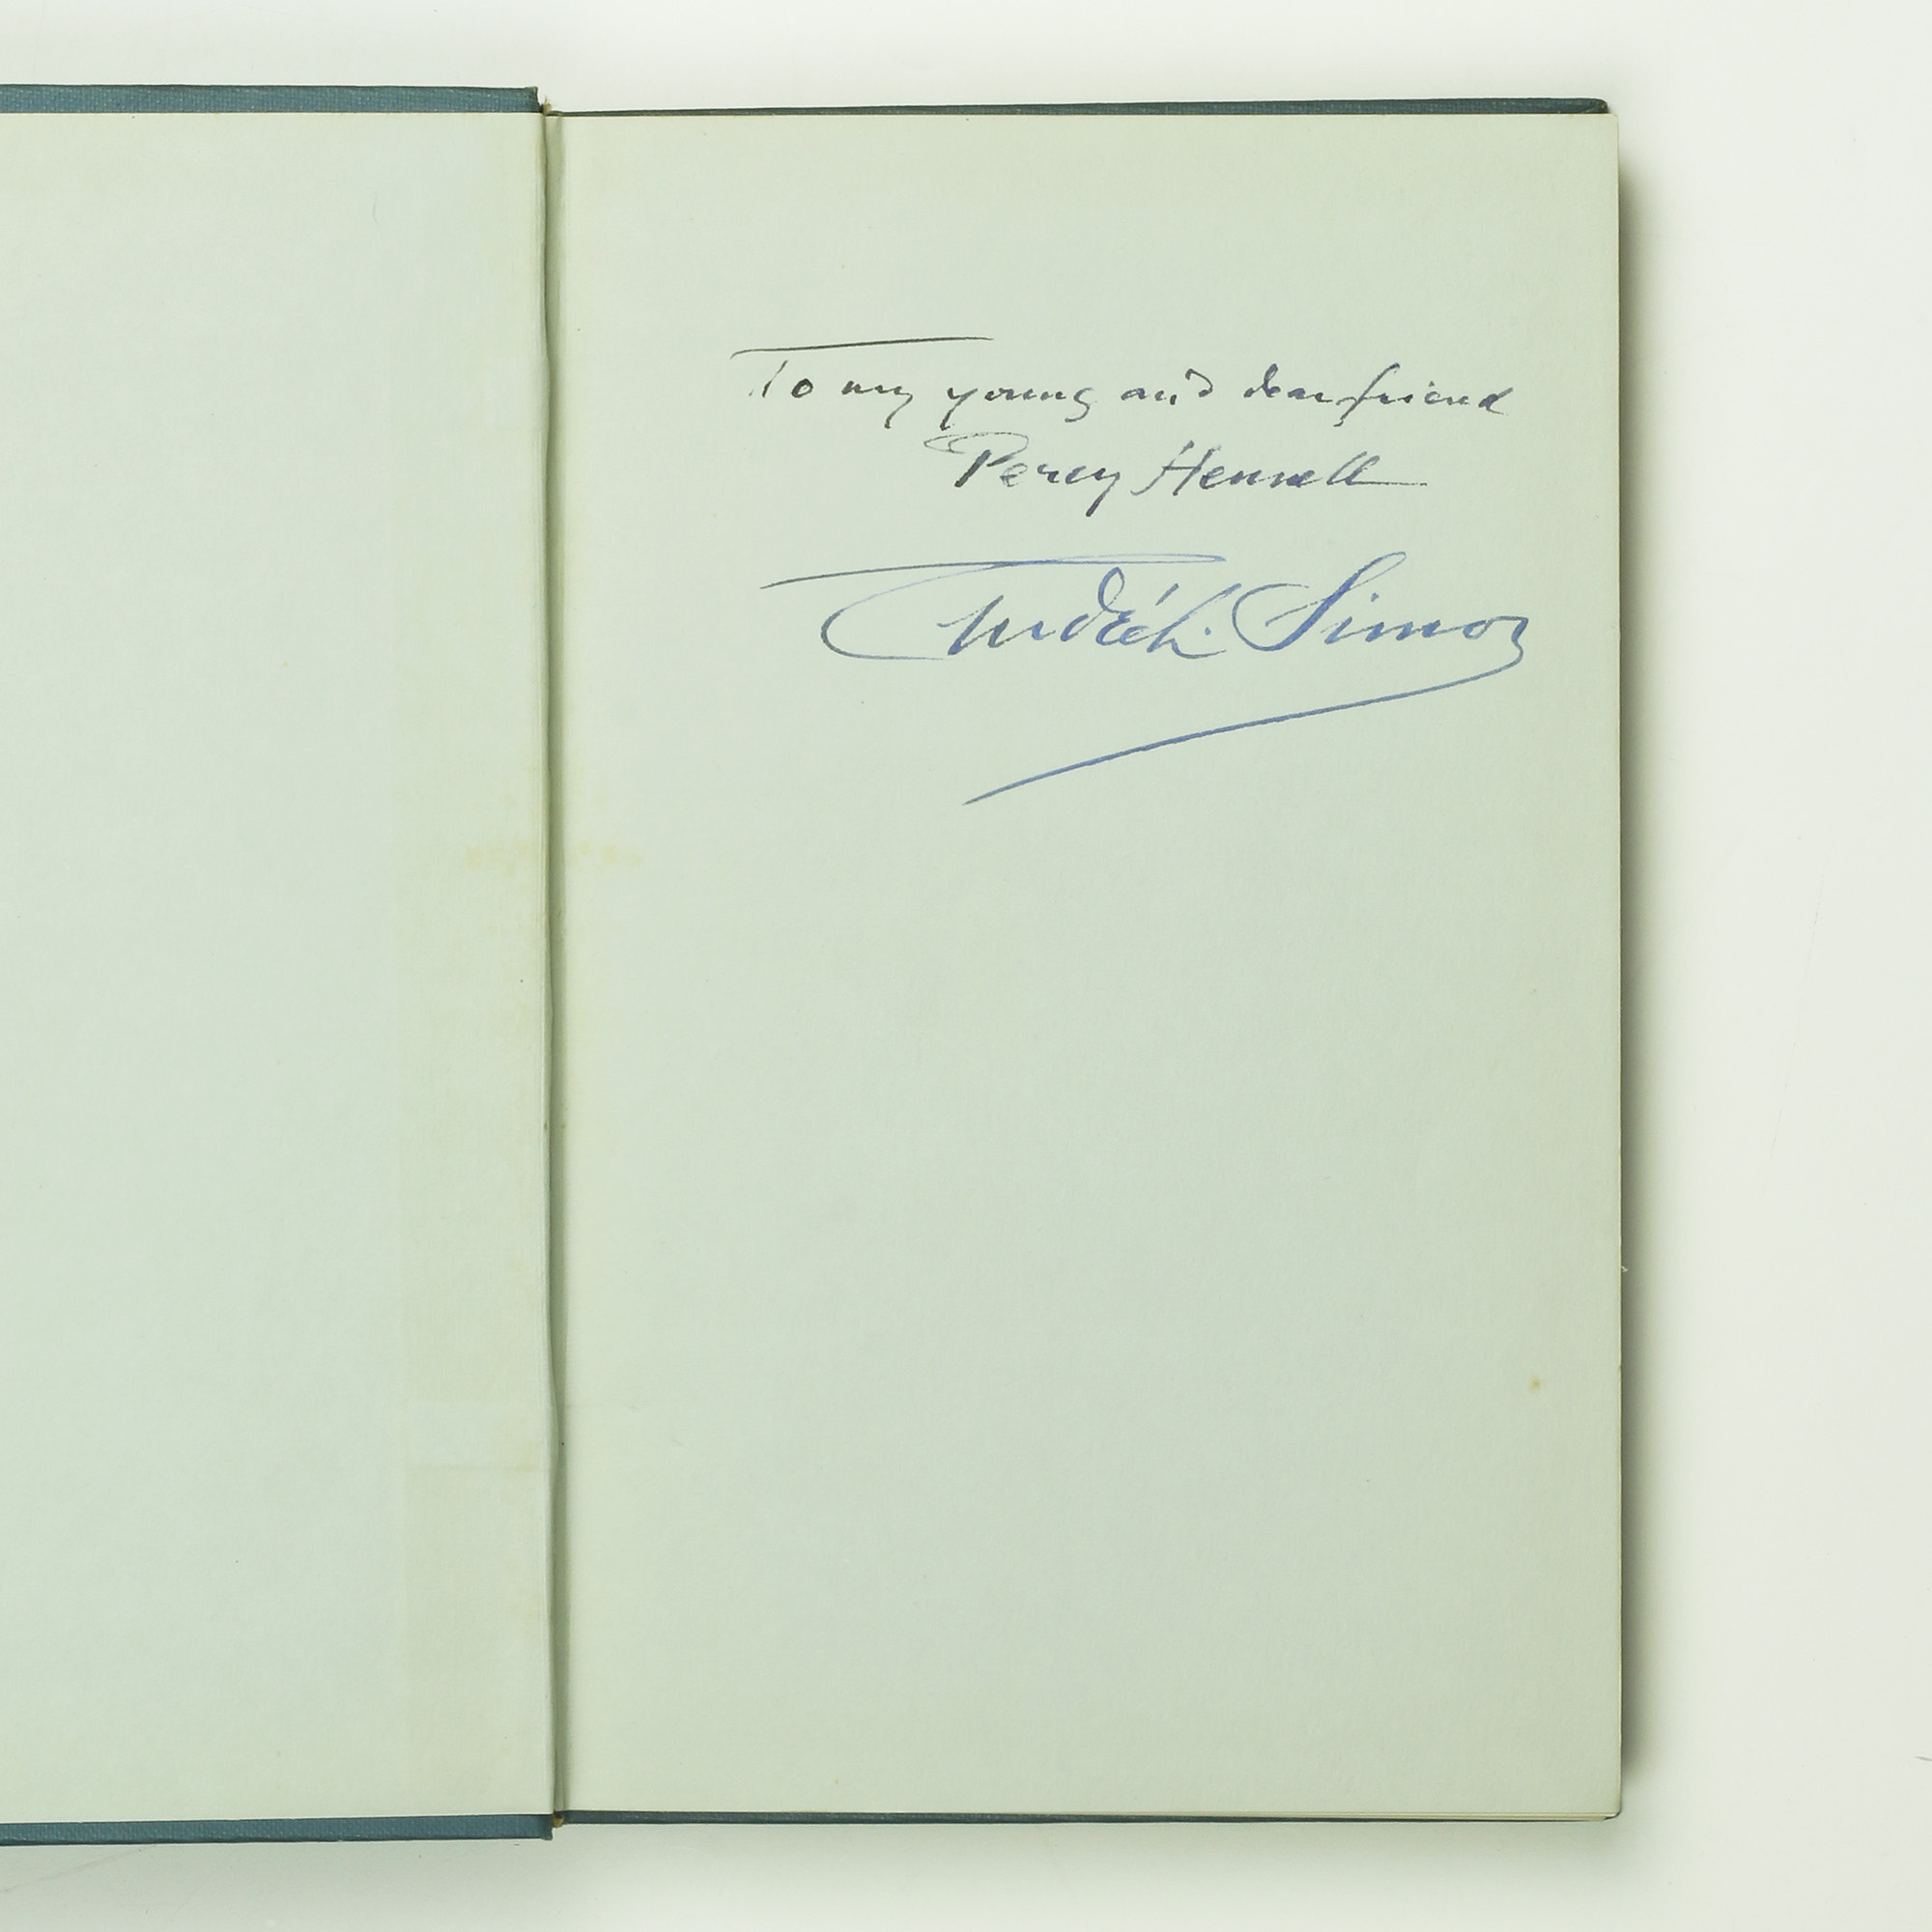 To my young and dear friend
Percy Hennell
André L. Simon